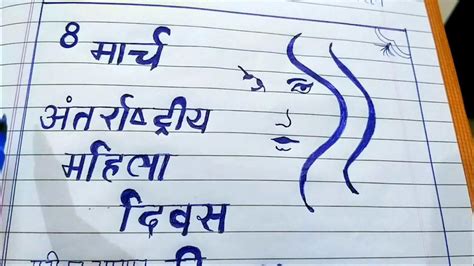 8 मार्च
अंतर्राष्ट्रीय
महिला
दिवस